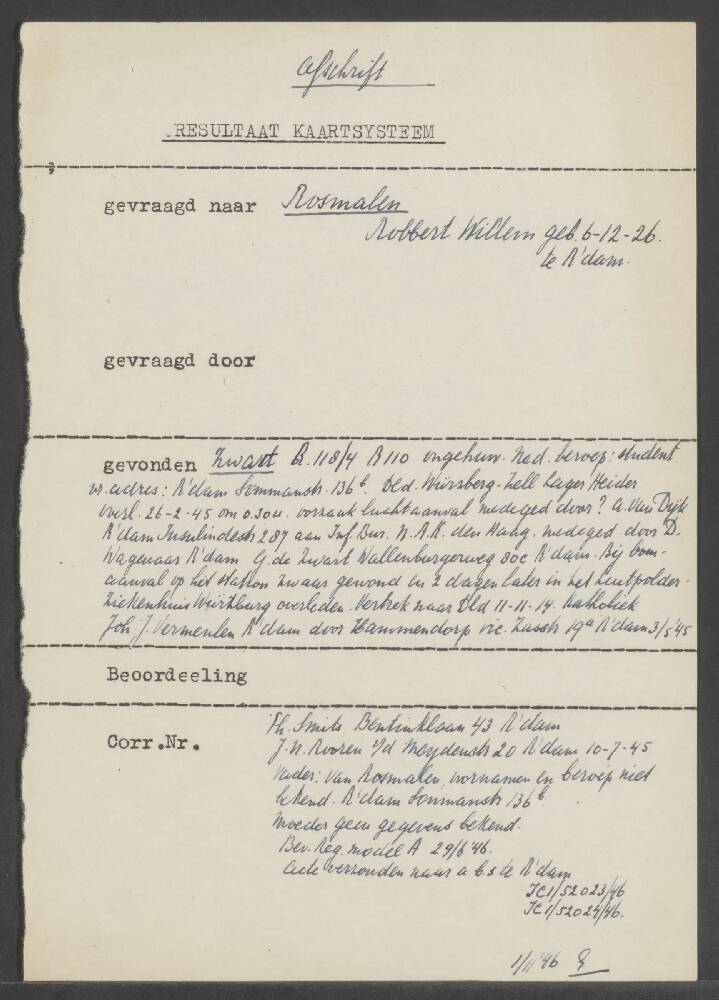 Afschrift
RESULTAAT KAARTSYSTEEM
gevraagd naar Rosmalen
Robbert Willem geb. 6-12-26.
te R'dam.
gevraagd door
gevonden Zwart R.118/4 R110 ongehuw. Ned. beroep: student
vr. adres: R'dam Sonmansstr. 136b. Dld. Würzberg-Zell Lager Heider
overl. 26-2-45 om 0.30 u. oorzaak luchtaanval medeged door? A. van Dijk
R'dam Insulindestr 287 aan Inf. Bur. N.R.K. den Haag. medeged. door D.
Wagenaar R'dam G. de Zwart Wallenburgerweg 80c R'dam. Bij bom-
aanval op het station zwaar gewond en 2 dagen later in het Leutpolder-
Ziekenhuis Würtzburg overleden. Vertrek naar Dld 11-11-14. Katholiek
Joh. J. Vermeulen R'dam door Hammendorp vic. Zasstr 19a R'dam 3/5'45
Beoordeeling
Corr.Nr. Th. Smits Bentinklaan 43 R'dam
J.N. Rooren v/d Meydenstr 20 R'dam 10-7-45
Vader: van Rosmalen, voornamen en beroep niet
bekend. R'dam Sonmansstr 136b
Moeder geen gegevens bekend.
Bev. Reg. model A 29/6'46.
Acte verzonden naar a.b.s te R'dam
JC1/52023/46
JC1/52024/46.
1/11'46